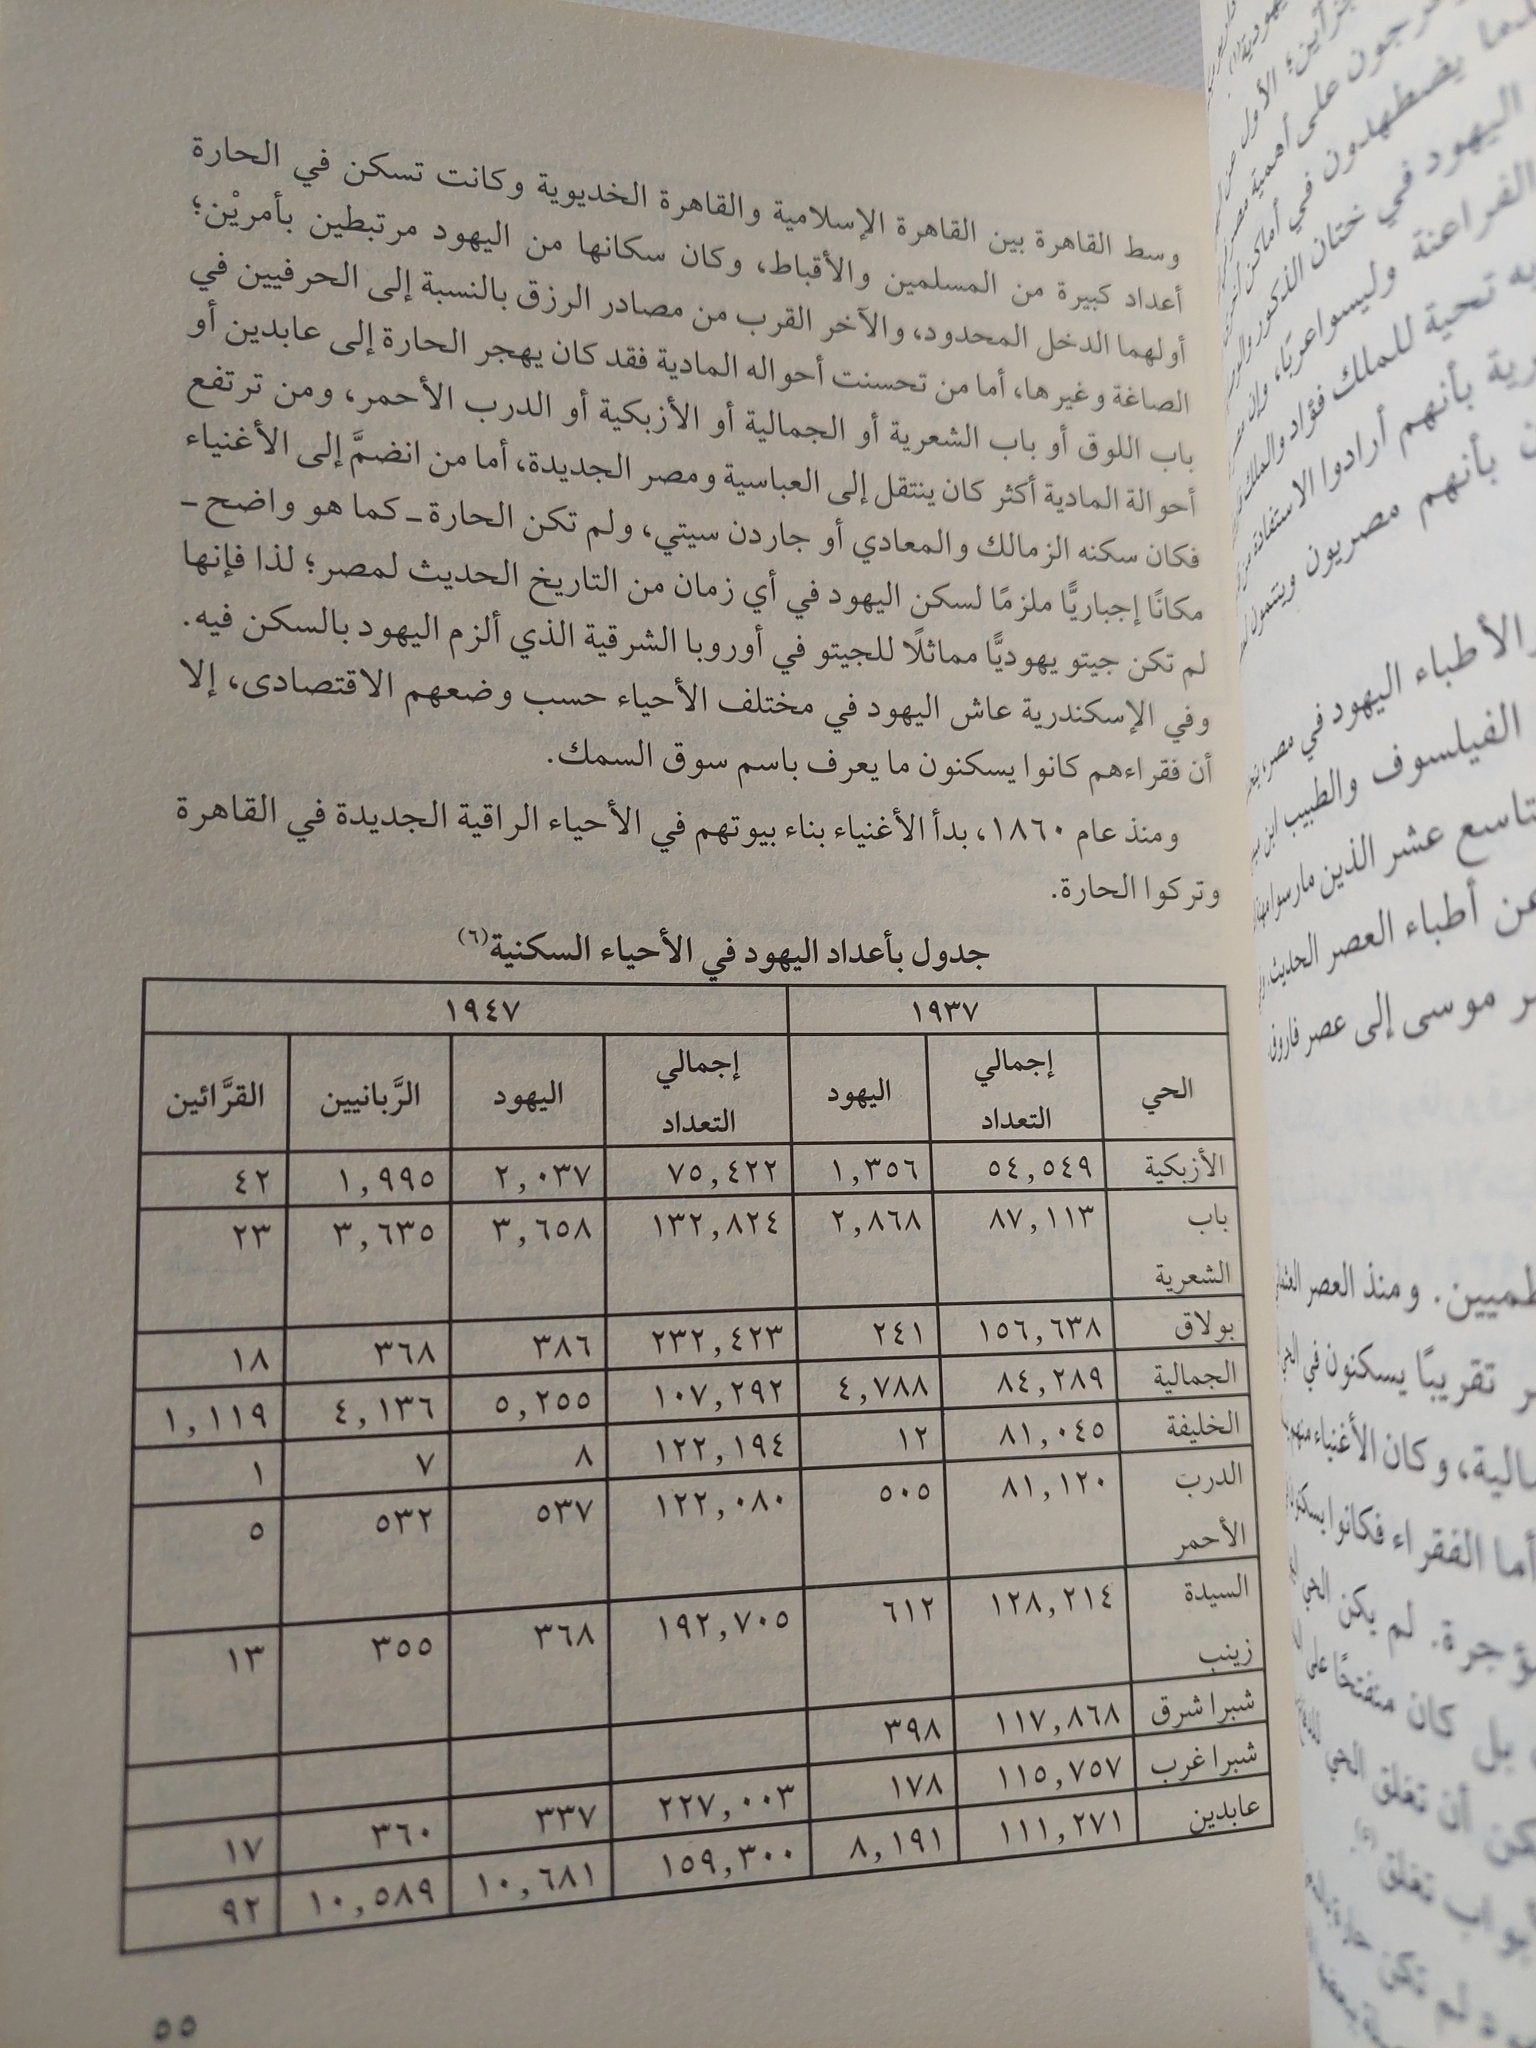 وسط القاهرة بين القاهرة الإسلامية والقاهرة الخديوية وكانت تسكن في الحارة
أعداد كبيرة من المسلمين والأقباط، وكان سكانها من اليهود مرتبطين بأمريْن؛
أولهما الدخل المحدود، والآخر القرب من مصادر الرزق بالنسبة إلى الحرفيين في
الصاغة وغيرها، أما من تحسنت أحواله المادية فقد كان يهجر الحارة إلى عابدين أو
باب اللوق أو باب الشعرية أو الجمالية أو الأزبكية أو الدرب الأحمر، ومن ترتفع
أحوالة المادية أكثر كان ينتقل إلى العباسية ومصر الجديدة، أما من انضمَّ إلى الأغنياء
فكان سكنه الزمالك والمعادي أو جاردن سيتي، ولم تكن الحارة ـ كما هو واضح ـ
مكانًا إجباريًّا ملزمًا لسكن اليهود في أي زمان من التاريخ الحديث لمصر؛ لذا فإنها
لم تكن جيتو يهوديًّا مماثلًا للجيتو في أوروبا الشرقية الذي ألزم اليهود بالسكن فيه.
وفي الإسكندرية عاش اليهود في مختلف الأحياء حسب وضعهم الاقتصادى، إلا
أن فقراءهم كانوا يسكنون ما يعرف باسم سوق السمك.
ومنذ عام ١٨٦٠، بدأ الأغنياء بناء بيوتهم في الأحياء الراقية الجديدة في القاهرة
وتركوا الحارة.
جدول بأعداد اليهود في الأحياء السكنية(٦)
١٩٣٧ ١٩٤٧
الحي إجمالي التعداد اليهود إجمالي التعداد اليهود الرَّبانيين القرَّائين
الأزبكية ٥٤,٥٤٩ ١,٣٥٦ ٧٥,٤٢٢ ٢,٠٣٧ ١,٩٩٥ ٤٢
باب الشعرية ٨٧,١١٣ ٢,٨٦٨ ١٣٢,٨٢٤ ٣,٦٥٨ ٣,٦٣٥ ٢٣
بولاق ١٥٦,٦٣٨ ٢٤١ ٢٣٢,٤٢٣ ٣٨٦ ٣٦٨ ١٨
الجمالية ٨٤,٢٨٩ ٤,٧٨٨ ١٠٧,٢٩٢ ٥,٢٥٥ ٤,١٣٦ ١,١١٩
الخليفة ٨١,٠٤٥ ١٢ ١٢٢,١٩٤ ٨ ٧ ١
الدرب الأحمر ٨١,١٢٠ ٥٠٥ ١٢٢,٠٨٠ ٥٣٧ ٥٣٢ ٥
السيدة زينب ١٢٨,٢١٤ ٦١٢ ١٩٢,٧٠٥ ٣٦٨ ٣٥٥ ١٣
شبرا شرق ١١٧,٨٦٨ ٣٩٨
شبرا غرب ١١٥,٧٥٧ ١٧٨ ٢٢٧,٠٠٣ ٣٣٧ ٣٦٠ ١٧
عابدين ١١١,٢٧١ ٨,١٩١ ١٥٩,٣٠٠ ١٠,٦٨١ ١٠,٥٨٩ ٩٢
٥٥
يضطهدون في أماكن
اليهود في ختان الذكور
الفراعنة وليسوا عربًا، وإن
به تحية للملك فؤاد والملك
بأنهم أرادوا الاستفادة
بأنهم مصريون وينتمون
والأطباء اليهود في مصر،
الفيلسوف والطبيب ابن
عشر الذين مارسوا مهنة
عن أطباء العصر الحديث.
موسى إلى عصر فاروق.
ومنذ العصر
تقريبًا يسكنون في
وكان الأغنياء منهم
أما الفقراء فكانوا
لم يكن الحي
بل كان منفتحًا على
أن تغلق الحي
تغلق
لم تكن حارة